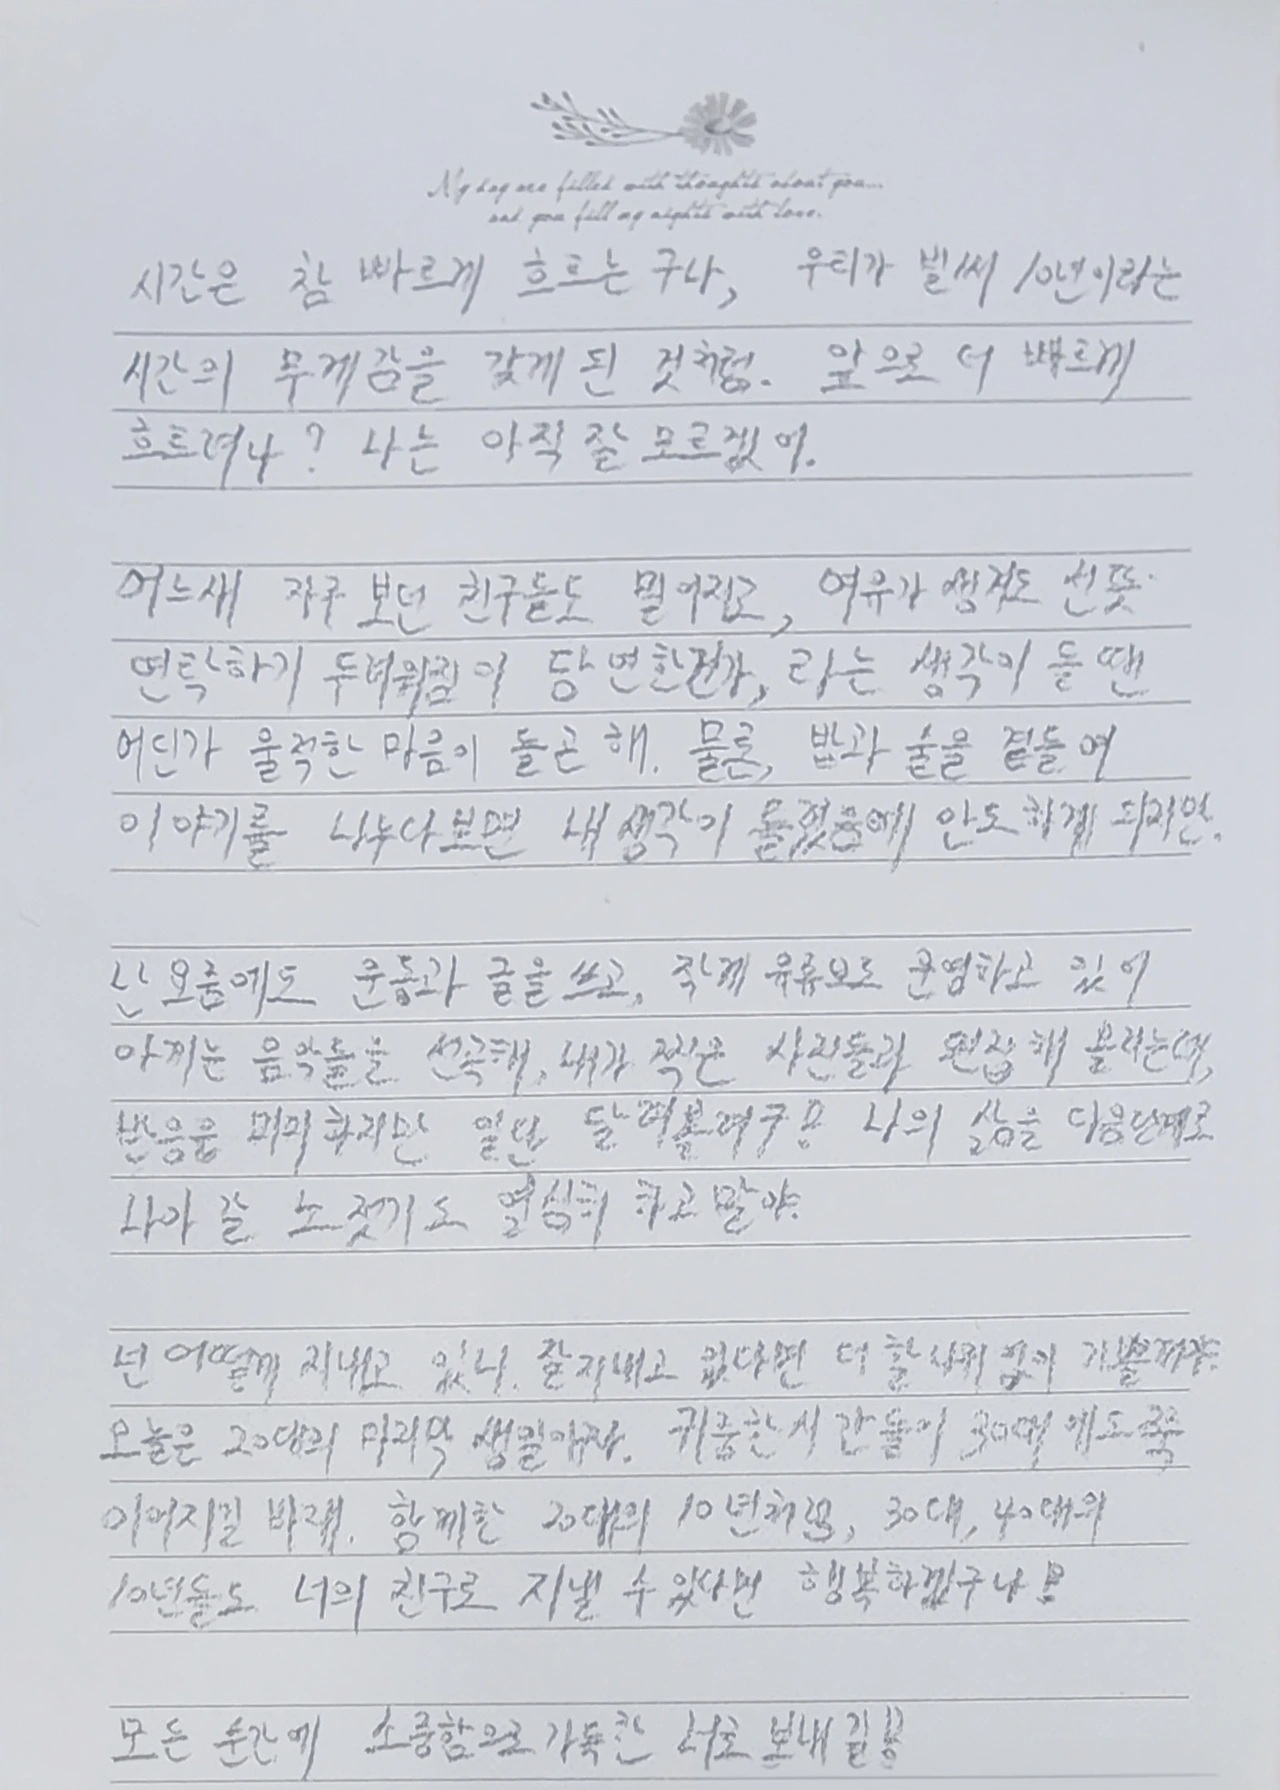 My day are filled with thoughts about you...
and you fill my nights with love.
시간은 참 빠르게 흐르는 구나, 우리가 벌써 10년이라는
시간의 무게감을 갖게 된 것처럼. 앞으로 더 빠르게
흐르려나? 나는 아직 잘 모르겠어.
어느새 자주 보던 친구들도 멀어지고, 여유가 생겨도 선뜻
연락하기 두려워짐이 당연한건가, 라는 생각이 들 땐
어딘가 울적한 마음이 들곤 해. 물론, 밥과 술을 곁들여
이야기를 나누다보면 내 생각이 틀렸음에 안도하게 되지만.
난 요즘에도 운동과 글을 쓰고, 작게 유튜브도 운영하고 있어
아끼는 음악들을 선곡해, 내가 찍은 사진들과 편집해 올리는데,
반응은 미미하지만 일단 달려볼려구! 나의 삶을 다음단계로
나아 갈 노젓기도 열심히 하고 말야.
넌 어떻게 지내고 있니. 잘지내고 있다면 더 할 나위 없이 기쁠거야.
오늘은 20대의 마지막 생일이자. 귀중한 시간들이 30대에도 쭉
이어지길 바래. 함께한 20대의 10년처럼, 30대, 40대의
10년들도 너의 친구로 지낼 수 있다면 행복하겠구나!
모든 순간에 소중함으로 가득찬 하루 보내길!